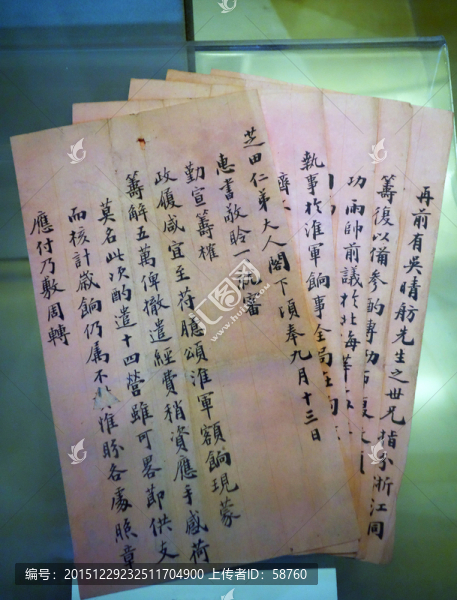 再前有吳晴舫先生之世兄指分浙江同
籌復以備參酌專
功兩帥前議於北海
執事於淮軍餉事全局
芝田仁弟大人閣下頃奉九月十三日
惠書敬聆一
審
勤宣籌榷
政履咸宜至符臆頌淮軍額餉現蒙
籌解五萬俾撤遣經費稍資應手感荷
莫名此次酌遣十四營雖可畧節供支
而核計歲餉仍屬不
盼各處照章
應付乃敷周轉
编号:20151229232511704900 上传者ID:58760